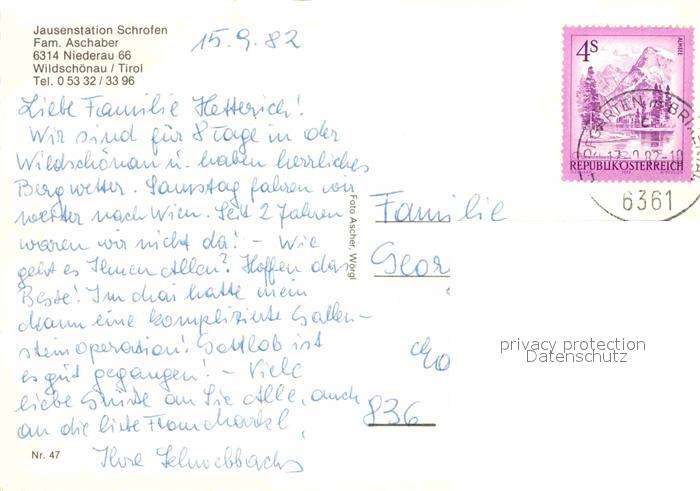 Jausenstation Schrofen
Fam. Aschaber
6314 Niederau 66
Wildschönau / Tirol
Tel. 0 53 32 / 33 96
15.9.82
Liebe Familie Hetterich!
Wir sind für 8 Tage in der
Wildschönau u. haben herrliches
Bergwetter. Samstag fahren wir
weiter nach Wien. Seit 2 Jahren
waren wir nicht da! – Wie
geht es Ihnen Allen? Hoffen das
Beste! Im Mai hatte mein
Mann eine komplizierte Gallen-
steinoperation! Gottlob ist
es gut gegangen! – Viele
liebe Grüße an Sie Alle, auch
an die liebe Frau
Ihre
Nr. 47
Foto Ascher, Wörgl
4S
ALMSEE
REPUBLIK ÖSTERREICH
6361
Familie
Geor
836
privacy protection
Datenschutz